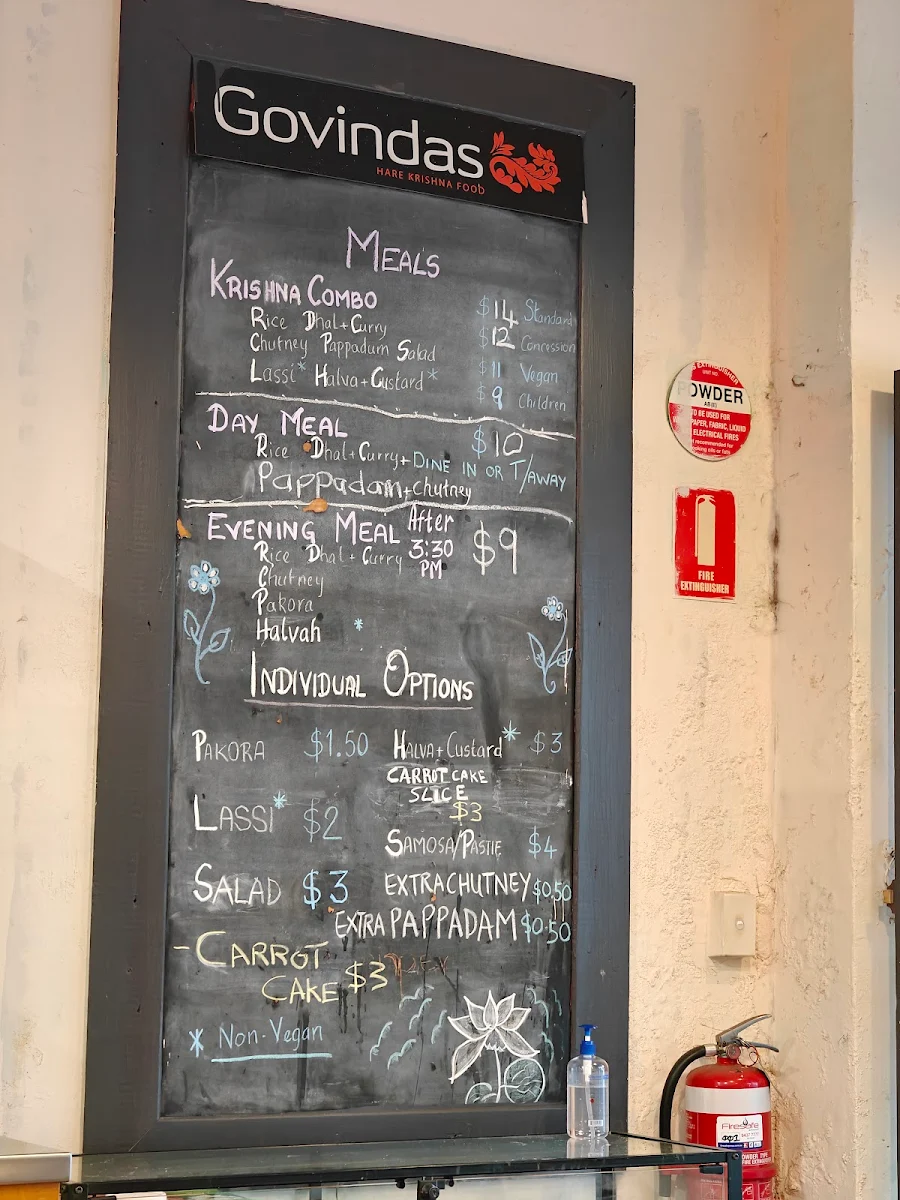 Govindas
HARE KRISHNA FOOD
MEALS
KRISHNA COMBO
Rice Dhal + Curry $14 Standard
Chutney Pappadum Salad $12 Concession
Lassi* Halva + Custard* $11 Vegan
$9 Children
DAY MEAL $10
Rice Dhal + Curry + DINE IN OR T/AWAY
Pappadam + Chutney
EVENING MEAL After 3:30 PM $9
Rice Dhal + Curry
Chutney
Pakora
Halvah *
INDIVIDUAL OPTIONS
PAKORA $1.50
HALVA + Custard* $3
CARROT CAKE
SLICE
$3
LASSI* $2
SAMOSA/PASTIE $4
SALAD $3
EXTRA CHUTNEY $0.50
EXTRA PAPPADAM $0.50
- CARROT
CAKE $3
* Non-Vegan
EXTINGUISHER
POWDER
AB(E)
TO BE USED FOR
PAPER, FABRIC, LIQUID
ELECTRICAL FIRES
FIRE
EXTINGUISHER
Firesafe